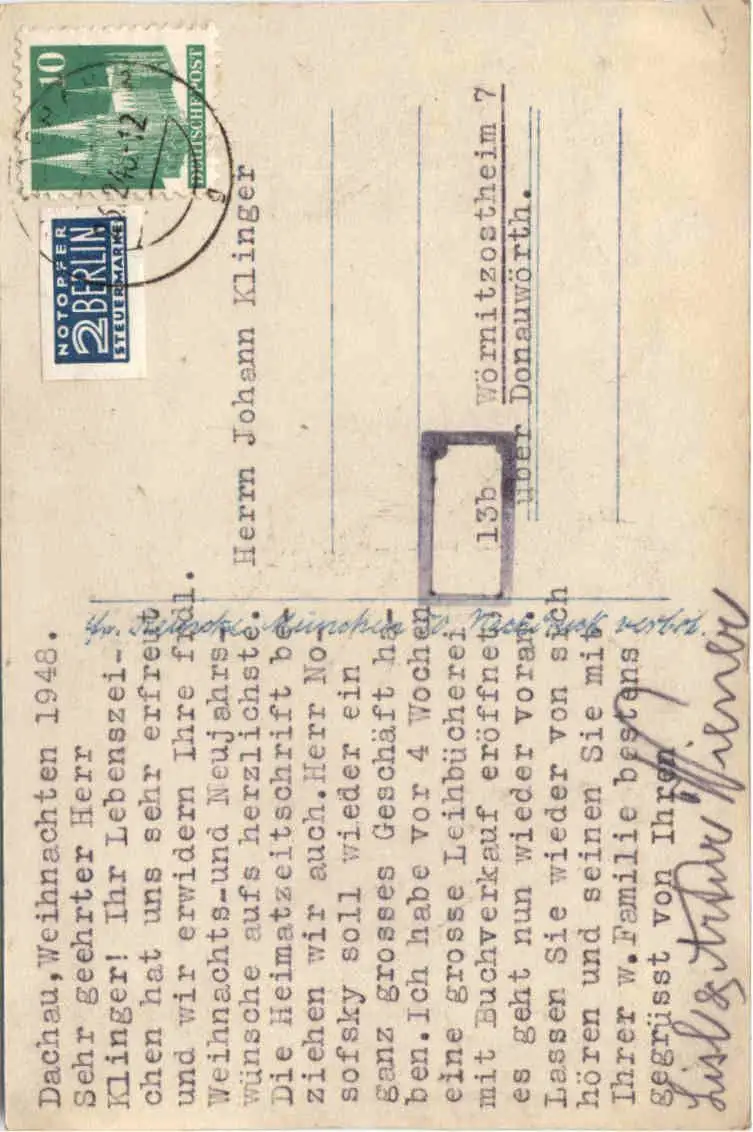 Dachau,Weihnachten 1948.
Sehr geehrter Herr
Klinger! Ihr Lebenszei-
chen hat uns sehr erfreut
und wir erwidern Ihre frdl.
Weihnachts-und Neujahrs-
wünsche aufs herzlichste.
Die Heimatzeitschrift be-
ziehen wir auch.Herr No-
sofsky soll wieder ein
ganz grosses Geschäft ha-
ben.Ich habe vor 4 Wochen
eine grosse Leihbücherei
mit Buchverkauf eröffnet,
es geht nun wieder voran.
Lassen Sie wieder von sich
hören und seinen Sie mit
Ihrer w.Familie bestens
gegrüsst von Ihren
Lisl & Artur Wiener
München Nachdruck verbot.
10
DEUTSCHE POST
24.12
g
NOTOPFER
2 BERLIN
STEUERMARKE
Herrn Johann Klinger
13b Wörnitzostheim 7
über Donauwörth.